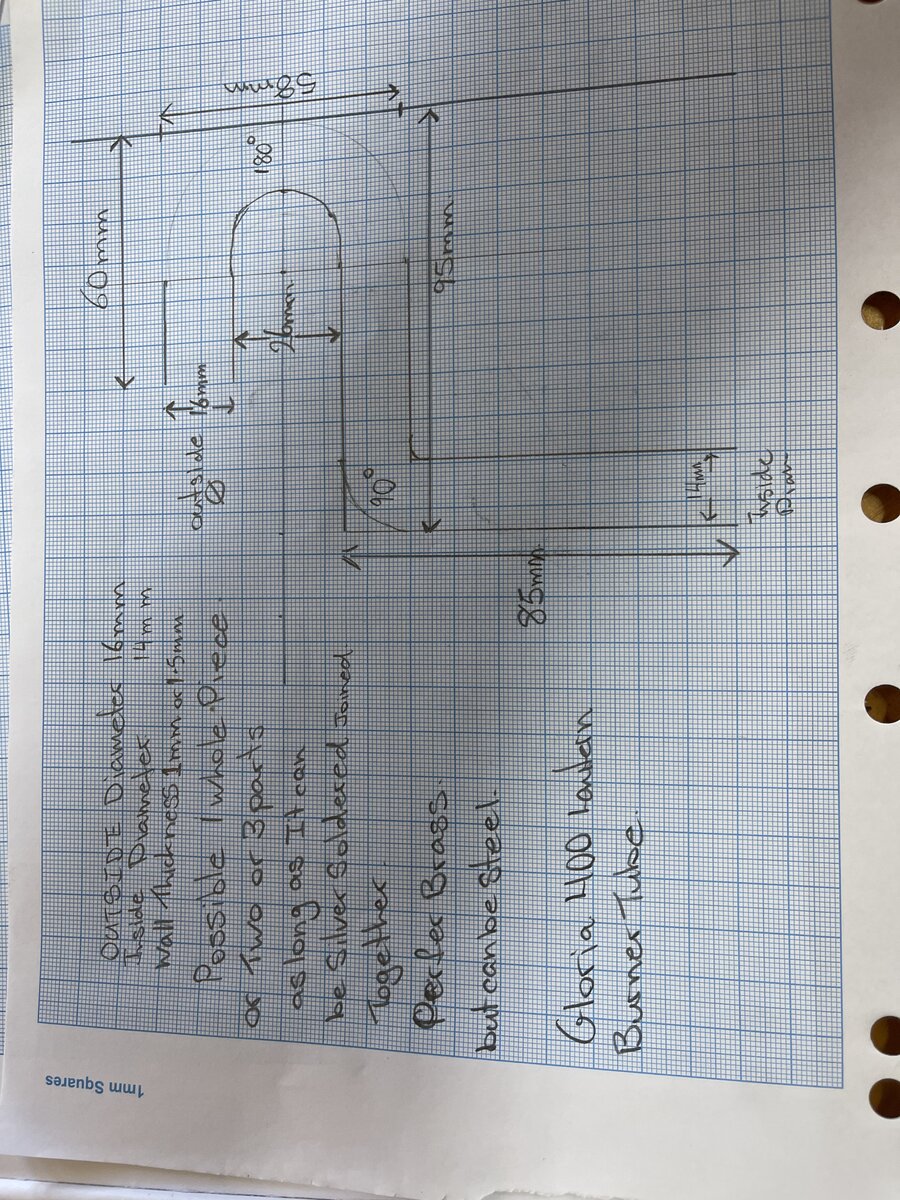 OUTSIDE Diameter 16mm
Inside Diameter 14mm
Wall Thickness 1mm or 1.5mm
Possible 1 whole Piece.
or Two or 3 parts
as long as It can
be Silver Soldered Joined
Together
Perfer Brass.
but can be Steel.
Gloria 400 Lantern
Burner Tube.
60mm
58mm
180°
outside 16mm
Ø
26mm
95mm
90°
85mm
14mm
Inside
Diam
1mm Squares